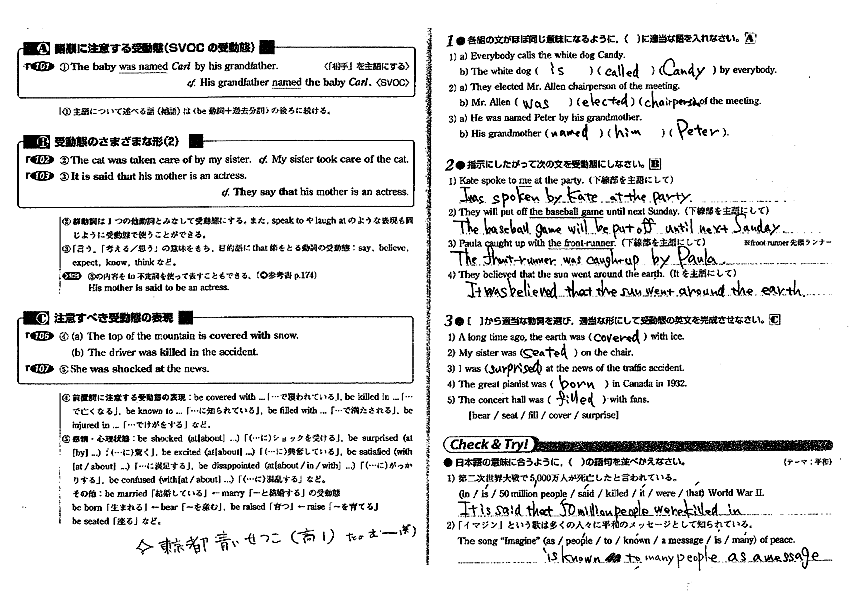 A 語順に注意する受動態(SVOC の受動態)
101 ①The baby was named Carl by his grandfather. 〈「相手」を主語にする〉
cf. His grandfather named the baby Carl. 〈SVOC〉
①主語について述べる語(補語)は〈be 動詞+過去分詞〉の後ろに続ける。
B 受動態のさまざまな形(2)
102 ②The cat was taken care of by my sister. cf. My sister took care of the cat.
103 ③It is said that his mother is an actress.
cf. They say that his mother is an actress.
②群動詞は1つの他動詞とみなして受動態にする。また、speak to や laugh at のような表現も同
じように受動態で使うことができる。
③「言う、「考える/思う」の意味をもち、目的語に that 節をとる動詞の受動態:say, believe,
expect, know, think など。
③の内容を to 不定詞を使って表すこともできる。(参考書 p.174)
His mother is said to be an actress.
C 注意すべき受動態の表現
106 ④(a) The top of the mountain is covered with snow.
(b) The driver was killed in the accident.
107 ⑤She was shocked at the news.
④前置詞に注意する受動態の表現:be covered with ...「…で覆われている」, be killed in ...「…
で亡くなる」, be known to ...「…に知られている」, be filled with ...「…で満たされる」, be
injured in ...「…でけがをする」など。
⑤感情・心理状態:be shocked (at[about] ...)「(…に)ショックを受ける」, be surprised (at
[by] ...)「(…に)驚く」, be excited (at[about] ...)「(…に)興奮している」, be satisfied (with
[at / about] ...)「…に満足する」, be disappointed (at[about / in / with] ...)「(…に)がっか
りする」, be confused (with[at / about] ...)「(…に)混乱する」など。
その他:be married「結婚している」←marry「~と結婚する」の受動態
be born「生まれる」←bear「~を産む」, be raised「育つ」←raise「~を育てる」
be seated「座る」など。
◇東京都 青い せつこ (高1)
1 ● 各組の文がほぼ同じ意味になるように、( )に適当な語を入れなさい。 A
1) a) Everybody calls the white dog Candy.
b) The white dog ( is ) (called) (Candy) by everybody.
2) a) They elected Mr. Allen chairperson of the meeting.
b) Mr. Allen (was ) (elected) (chairperson of the meeting.
3) a) He was named Peter by his grandmother.
b) His grandmother (named ) (him ) (Peter ).
2 ● 指示にしたがって次の文を受動態にしなさい。 B
1) Kate spoke to me at the party. (下線部を主語にして)
I was spoken by Kate at the party.
2) They will put off the baseball game until next Sunday. (下線部を主語にして)
The baseball game will be put off until next Sunday.
3) Paula caught up with the front-runner. (下線部を主語にして) ※front runner 先頭ランナー
The front-runner was caught-up by Paula.
4) They believed that the sun went around the earth. (It を主語にして)
It was believed that the sun went around the earth.
3 ● [ ]から適当な動詞を選び、適当な形にして受動態の英文を完成させなさい。 C
1) A long time ago, the earth was (covered) with ice.
2) My sister was (seated ) on the chair.
3) I was (surprised) at the news of the traffic accident.
4) The great pianist was ( born ) in Canada in 1932.
5) The concert hall was ( filled ) with fans.
[bear / seat / fill / cover / surprise]
Check & Try!
● 日本語の意味に合うように、( )の語句を並べかえなさい。 (テーマ:平和)
1) 第二次世界大戦で5,000万人が死亡したと言われている。
(in / is / 50 million people / said / killed / it / were / that) World War II.
It is said that 50 million people were killed in
2)「イマジン」という歌は多くの人々に平和のメッセージとして知られている。
The song "Imagine" (as / people / to / known / a message / is / many) of peace.
is known to many people as a message